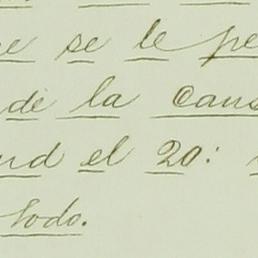 se le pe
de la caus
el 20:
todo.